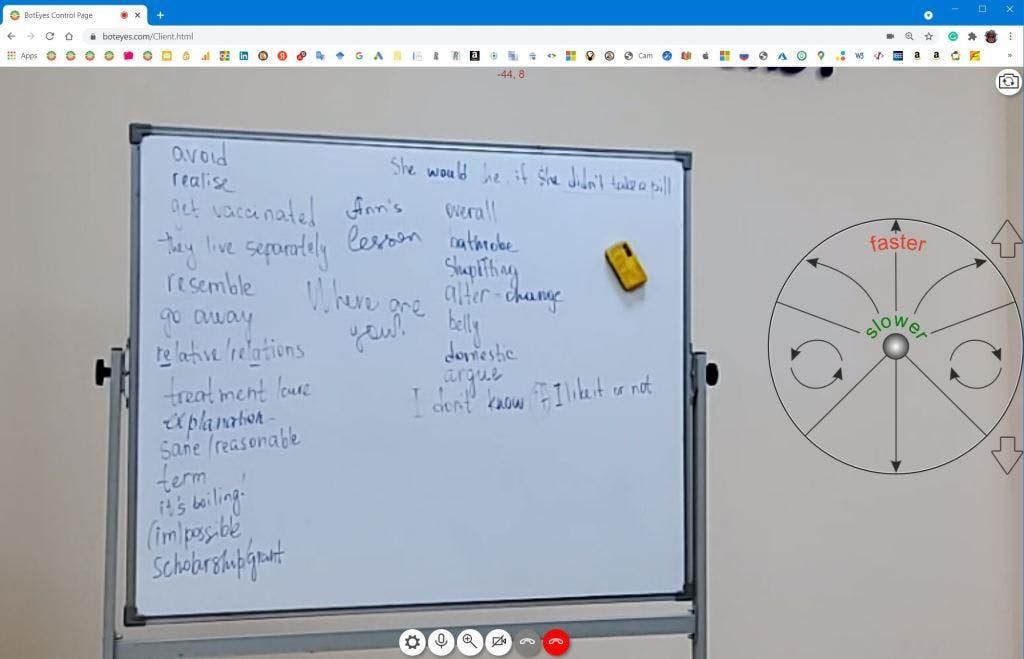 BotEyes Control Page
boteyes.com/Client.html
Apps
Cam
-44, 8
avoid
realise
get vaccinated
they live separately
resemble
go away
relative/relations
treatment /cure
explanation
sane/reasonable
term
it's boiling!
(im)possible
scholarship/grant
Ann's
lesson
Where are
you?
She would be, if she didn't take a pill
overall
bathrobe
alter-change
belly
domestic
argue
I don't know if I like it or not
faster
slower